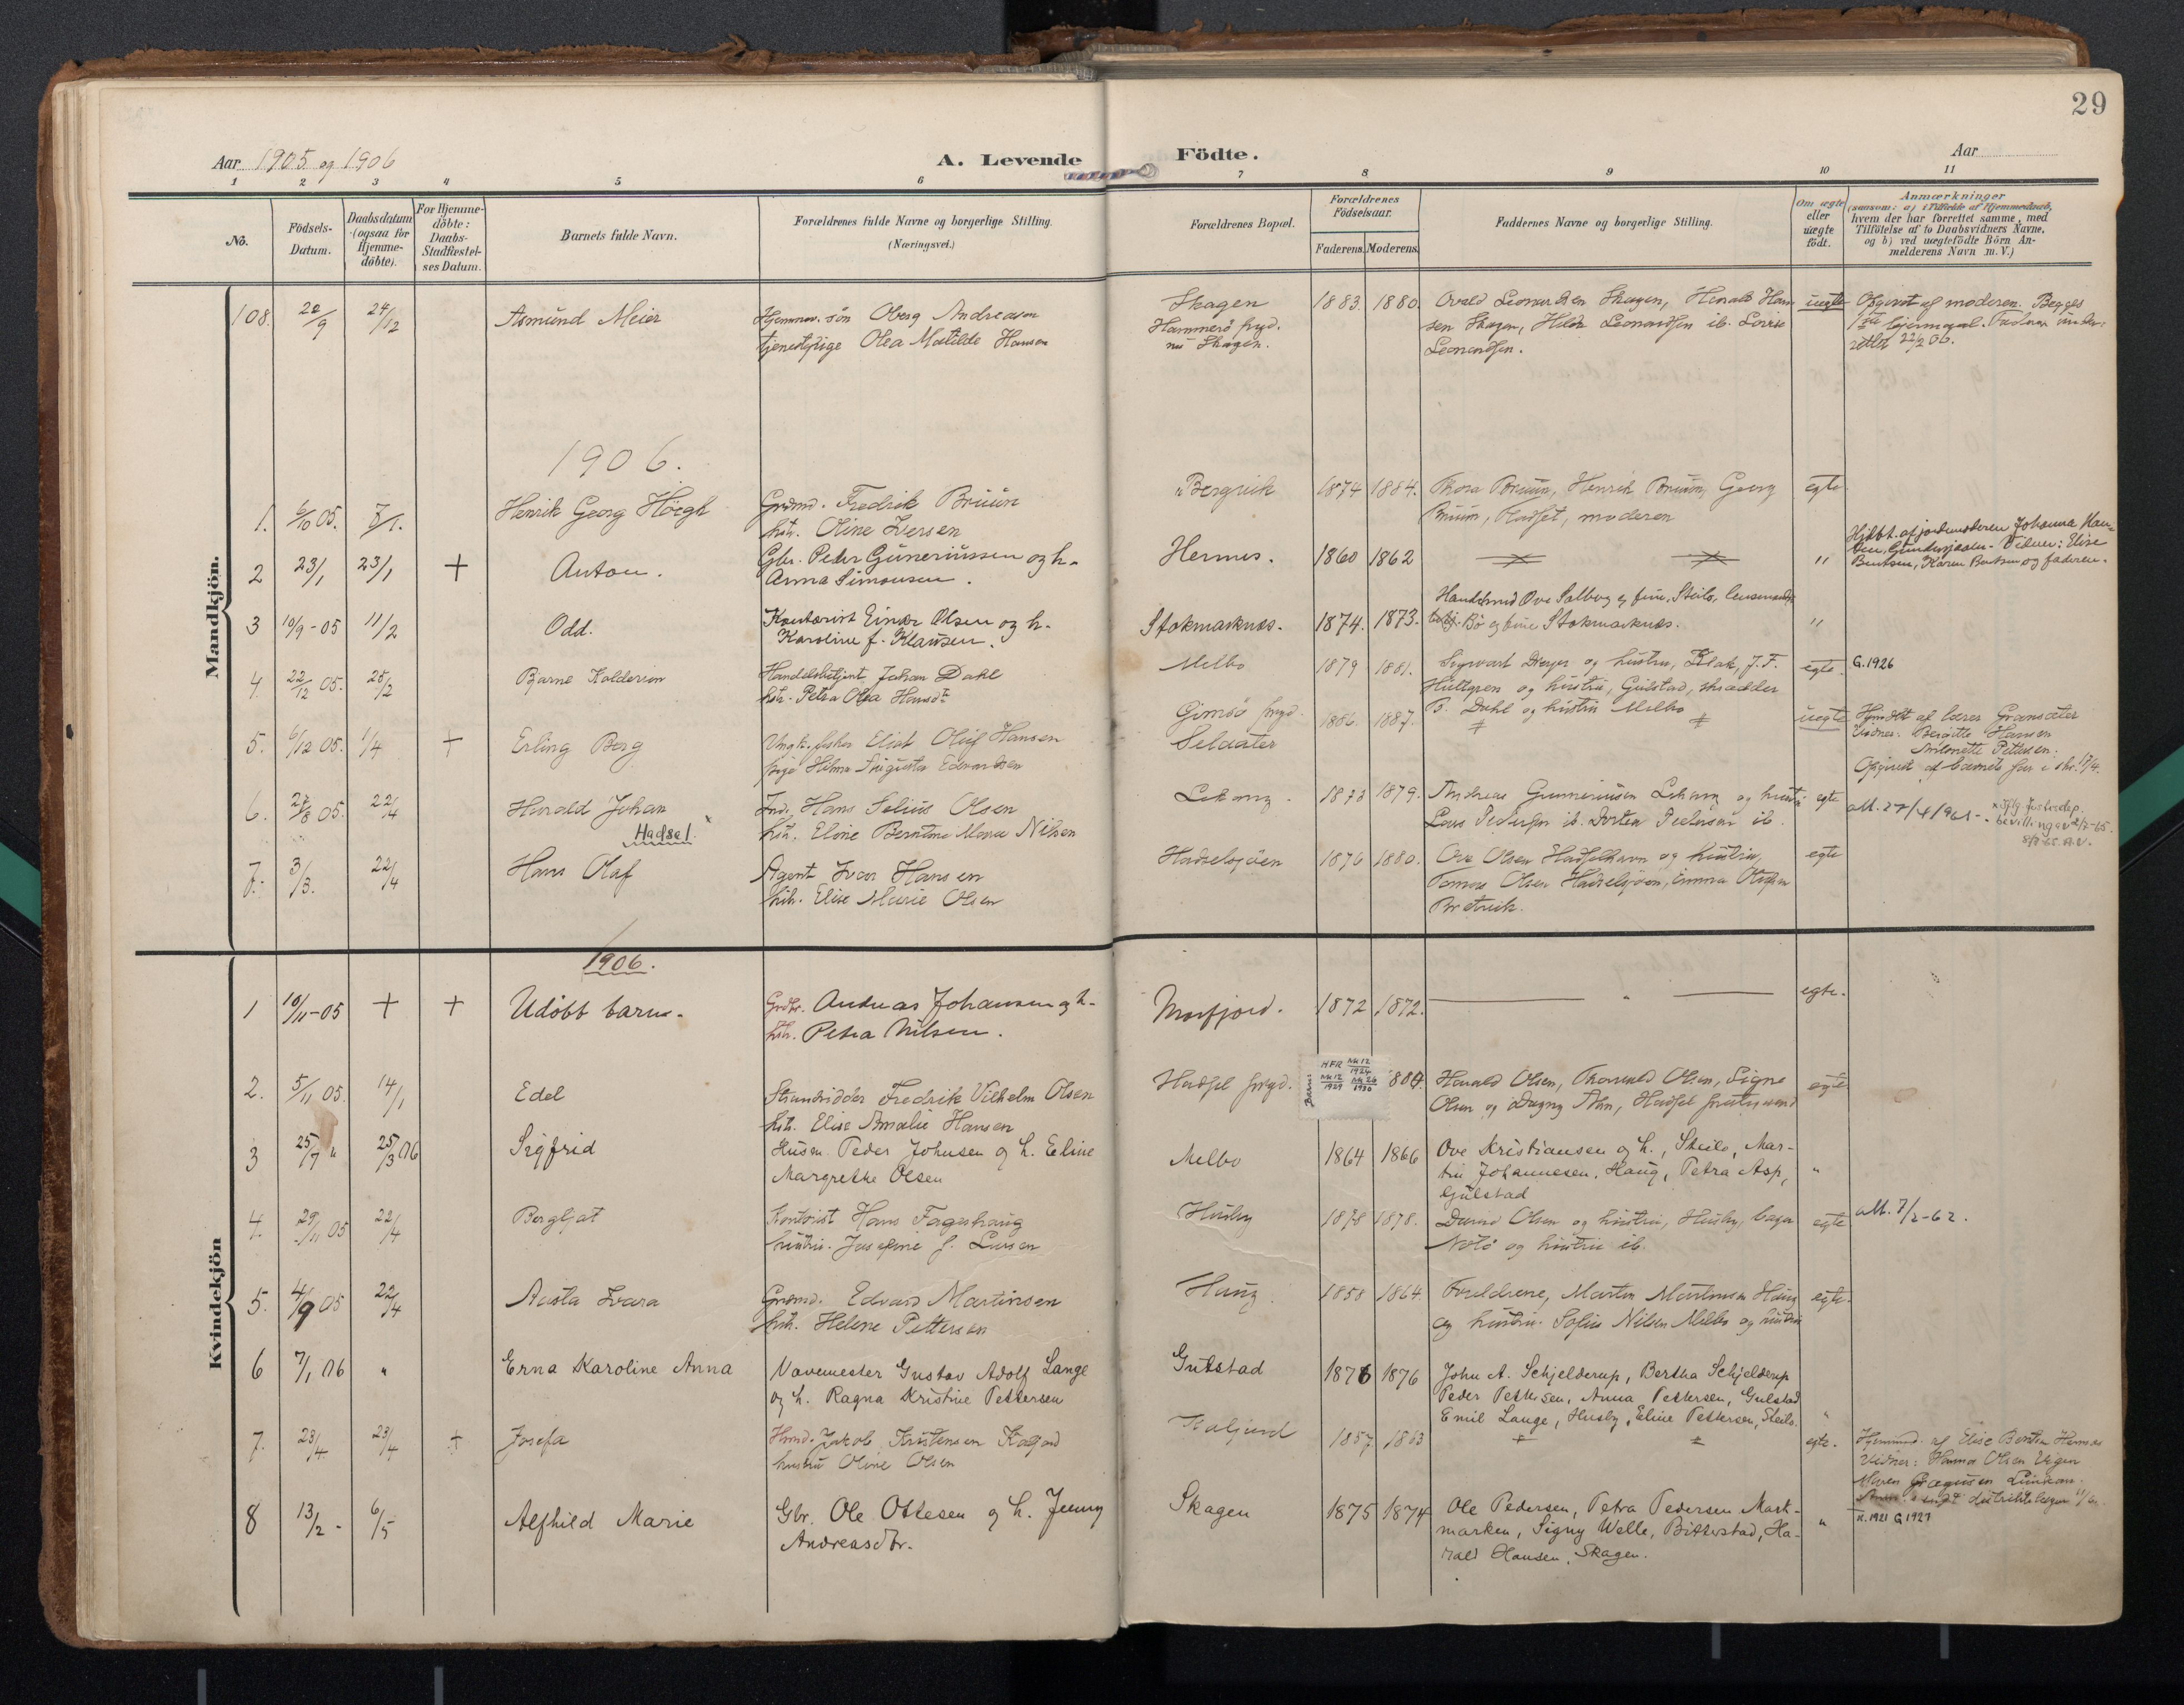 29
Aar 1905 og 1906
A. Levende
Födte.
Aar
1 2 3 4 5 6 7 8 9 10 11
No.
Födsels-
Datum.
Daabsdatum
(ogsaa for
Hjemme-
döbte).
For Hjemme-
döbte:
Daabs-
Stadfæstel-
ses Datum.
Barnets fulde Navn.
Forældrenes fulde Navne og borgerlige Stilling.
(Næringsvei.)
Forældrenes Bopæl.
Forældrenes
Födselsaar.
Faderens. Moderens.
Faddernes Navne og borgerlige Stilling.
Om ægte
eller
uægte
födt.
Anmærkninger
(saasom: a) i Tilfælde af Hjemmedaab,
hvem der har forrettet samme, med
Tilföielse af to Daabsvidners Navne,
og b) ved uægtefödte Börn An-
melderens Navn m. V.)
Mandkjön.
108. 22/9 24/12 Asmund Meier
Hjemmev. sön Oberg Andreasen
tjenestpige Olea Matilde Hansen
Skagen
Hammerö prgd.
nu Skagen.
1883. 1880.
Ovald Leonardsen Skagen, Harald Han
sen Skagen, Hilda Leonardsen ib. Lovise
Leonardsen.
uegte
Opgivet af moderen. Begges
1ste leiermaal. Faderen under-
rettet 22/2 06.
1906.
1. 6/10 05. 7/1. Henrik Georg Höegh
Grdmd. Fredrik Bruun
hstr. Oline Iversen
Bergvik
1874 1884.
Thora Bruun, Henrik Bruun, Georg
Bruun, Hadsel, moderen
egte
2 23/1 23/1 + Anton.
Gbr. Peder Guneriussen og h.
Anna Simonsen.
Hermes.
1860 1862
"
Hjdbt. af jordemoderen Johanna Han-
sen, Vidner: Elise
Bentsen, Karen Bentsen og faderen.
3 10/9-05 11/2 Odd.
Kontorist Einar Olsen og h.
Karoline f. Klausen.
Stokmarknes.
1874. 1873.
Handelsmd Ove Solberg og frue, Steilo,
Bö og frue Stokmarknes.
"
4. 22/12 05. 25/2 Bjarne Kolderun
Handelsbetjent Johan Dahl
hstr. Petra Olea Hansdt
Melbo
1879 1881.
Sigvart Dreyer og hustru, Klak, J. F.
Hultgren og hustru, Gulstad, skrædder
B. Dahl og hustru Melbo
egte.
G. 1926
5. 6/12 05. 1/4 + Erling Berg
Ungk. fisker Eliot Oluf Hansen
pige Hilma Augusta Edvardsen
Gimsö prgd.
Selsæter
1886. 1887.
uegte
Hjmdbt af lærer Gransæter
Vidner: Bergitte Hansen
Antonette Pettersen.
Opgivet af barnets far i skr. 17/4.
6. 27/8 05. 22/4 Harald Johan
Hadsel.
Ind. Hans Selius Olsen
hstr. Eline Berntine Marie Nilsen
Lekang.
1873 1879.
Andreas Gunneriusen Lekang og hustru
Lars Pedersen ib. Dortea Pedersen ib.
egte
att. 27/4 1961 -
iflg. justisdep.
bevilling av 2/7-65.
7. 3/3. 22/4 Hans Olaf
Agent Ivar Hansen
hstr. Elise Marie Olsen
Hadselsjöen
1876 1880.
Ove Olsen Hadselhavn og hustru,
Tomas Olsen Hadselsjöen, Emma Olufsen
Bretvik.
egte
Kvindekjön
1906.
1 10/11-05 + + Udöbt barn.
Grdbr. Andreas Johansen og h.
hstr. Petra Nilsen.
Morfjord.
1872 1872.
egte.
2. 5/11 05. 14/1 Edel
Strandsidder Fredrik Vilhelm Olsen
hstr. Elise Amalie Hansen
Hadsel prgd.
Barn:
HFR Nk 12 1926
Nk 12 1929 Nk 26 1930
Harald Olsen, Thorvald Olsen, Signe
Olsen og Dagny Ahn, Hadsel
egte
3 25/7 " 25/3 06 Sigfrid
Husm. Peder Johnsen og h. Eline
Margrethe Olsen
Melbo
1864 1866
Ove Kristiansen og h., Steilo, Mar-
tin Johannesen, Haug, Petra Asp,
Gulstad
"
4. 29/11 05 22/4 Bergljot
Kontorist Hans Fagerhaug
hustru. Josefine f. Larsen
Husby
1878 1878.
Daniel Olsen og hustru, Husby, bager
Nölö og hustru ib.
egte
att. 7/2-62.
5. 4/9 05 22/4 Aasta Ivara
Grdmd. Edvard Martinsen
hstr. Helene Pettersen
Haug.
1858 1864.
Foreldrene, Martin Martinsen Haug
og hustru. Sofus Nilsen Melbo og hustru
egte.
6 7/1 06 " Erna Karoline Anna
Vavemester Gustav Adolf Lange
og h. Ragna Kristine Pettersen
Gulstad
1876 1876
John A. Schjelderup, Bertha Schjelderup
Peder Pettersen, Anna Pettersen, Gulstad
Emil Lange, Husby, Eline Pettersen, Steilo.
"
7. 23/4 23/4 + Josefa
Hmd. Jakob Kristensen Kaljord
hustru Oline Olsen
Kaljord
1857 1863
egte.
Hjemmed. af Elise Bentsen
Vidner: Hanna Olsen
8 13/2 - 6/5 Alfhild Marie
Gbr. Ole Ottesen og h. Jenny
Andreasdtr.
Skagen
1875 1874
Ole Pedersen, Petra Pedersen Mark-
marken, Signy Welle, Bitterstad, Ha-
rald Hansen, Skagen.
"
n. 1921 G 1927